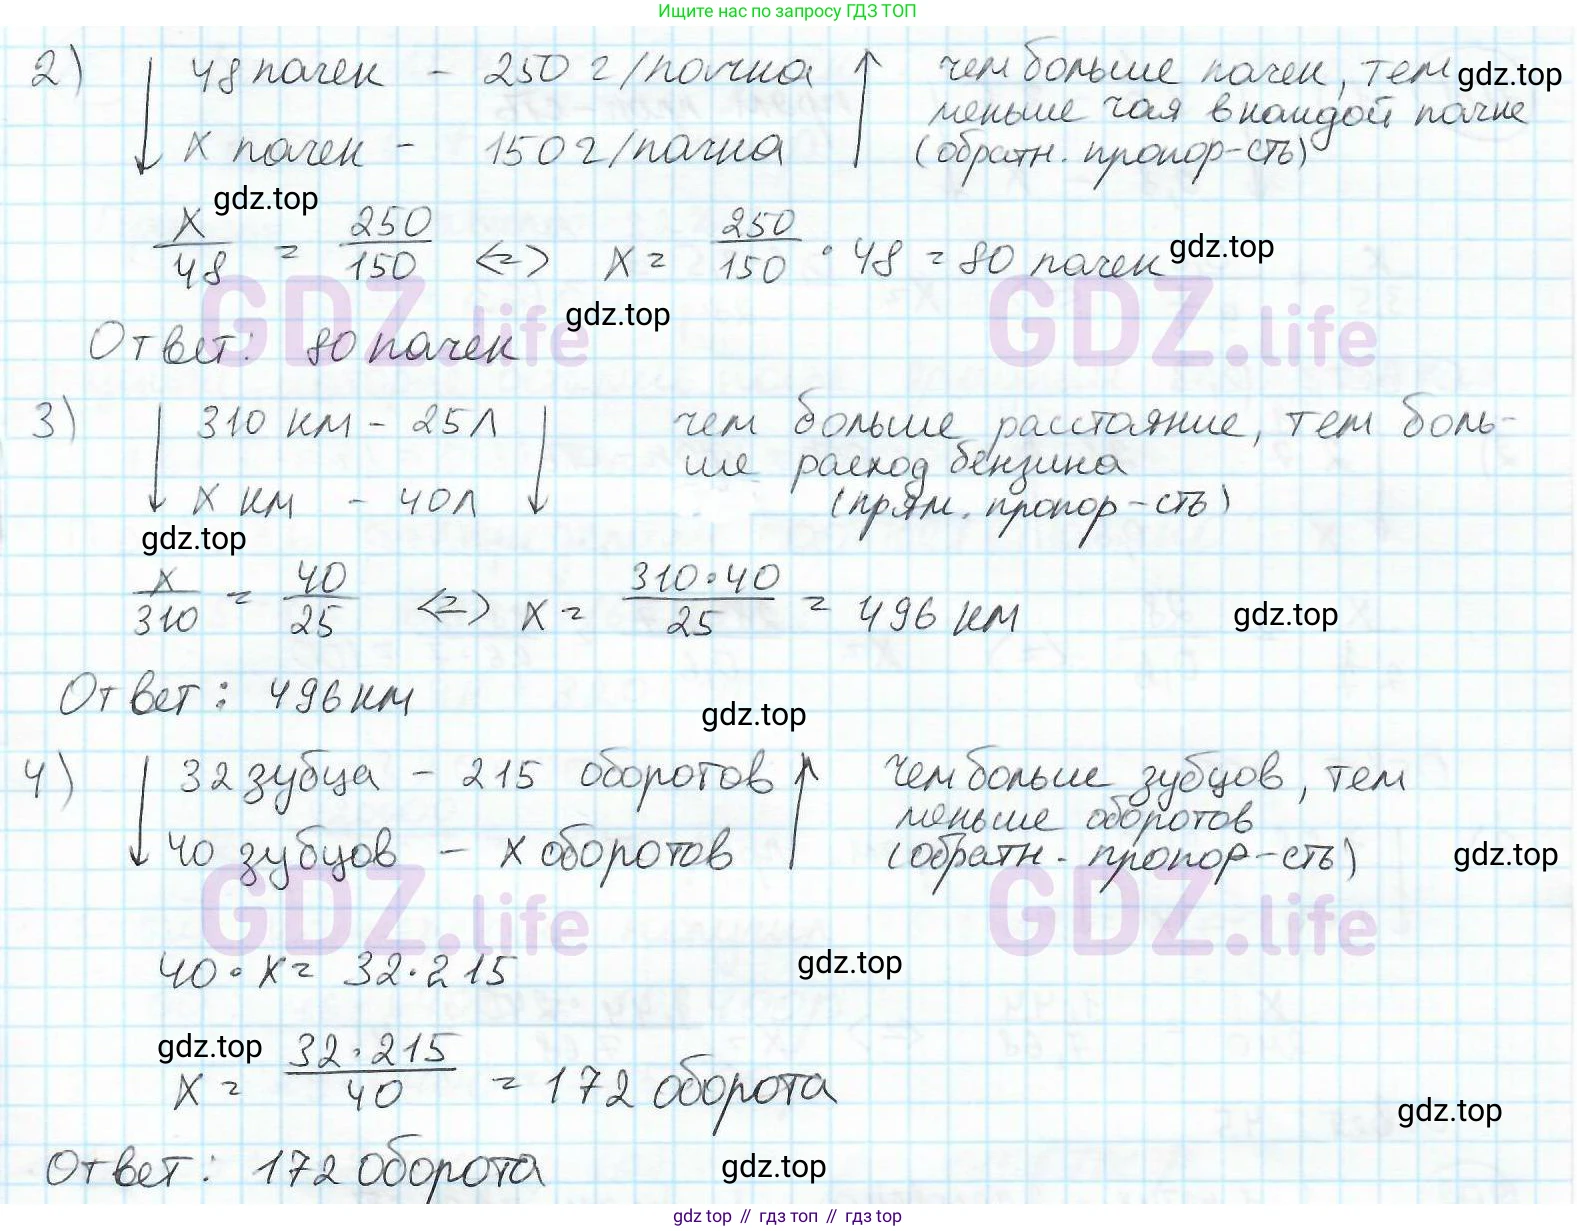 Ищите нас по запросу ГДЗ ТОП
2) 48 пачек - 250 г/пачка чем больше пачек, тем gdz.top
меньше чая в каждой пачке
x пачек - 150 г/пачка (обратн. пропор-сть)
gdz.top
x/48 = 250/150 <=> x = 250/150 · 48 = 80 пачек gdz.top
GDZ.life GDZ.life
gdz.top
Ответ: 80 пачек
3) 310 км - 25 л чем больше расстояние, тем боль-
ше расход бензина
x км - 40 л (прям. пропор-сть)
gdz.top
x/310 = 40/25 <=> x = 310·40/25 = 496 км gdz.top
Ответ: 496 км gdz.top
4) 32 зубца - 215 оборотов чем больше зубцов, тем
меньше оборотов
40 зубцов - x оборотов (обратн. пропор-сть) gdz.top
GDZ.life GDZ.life
40 · x = 32 · 215 gdz.top
gdz.top
x = 32·215/40 = 172 оборота
gdz.top
Ответ: 172 оборота gdz.top
gdz top // гдз топ // gdz top